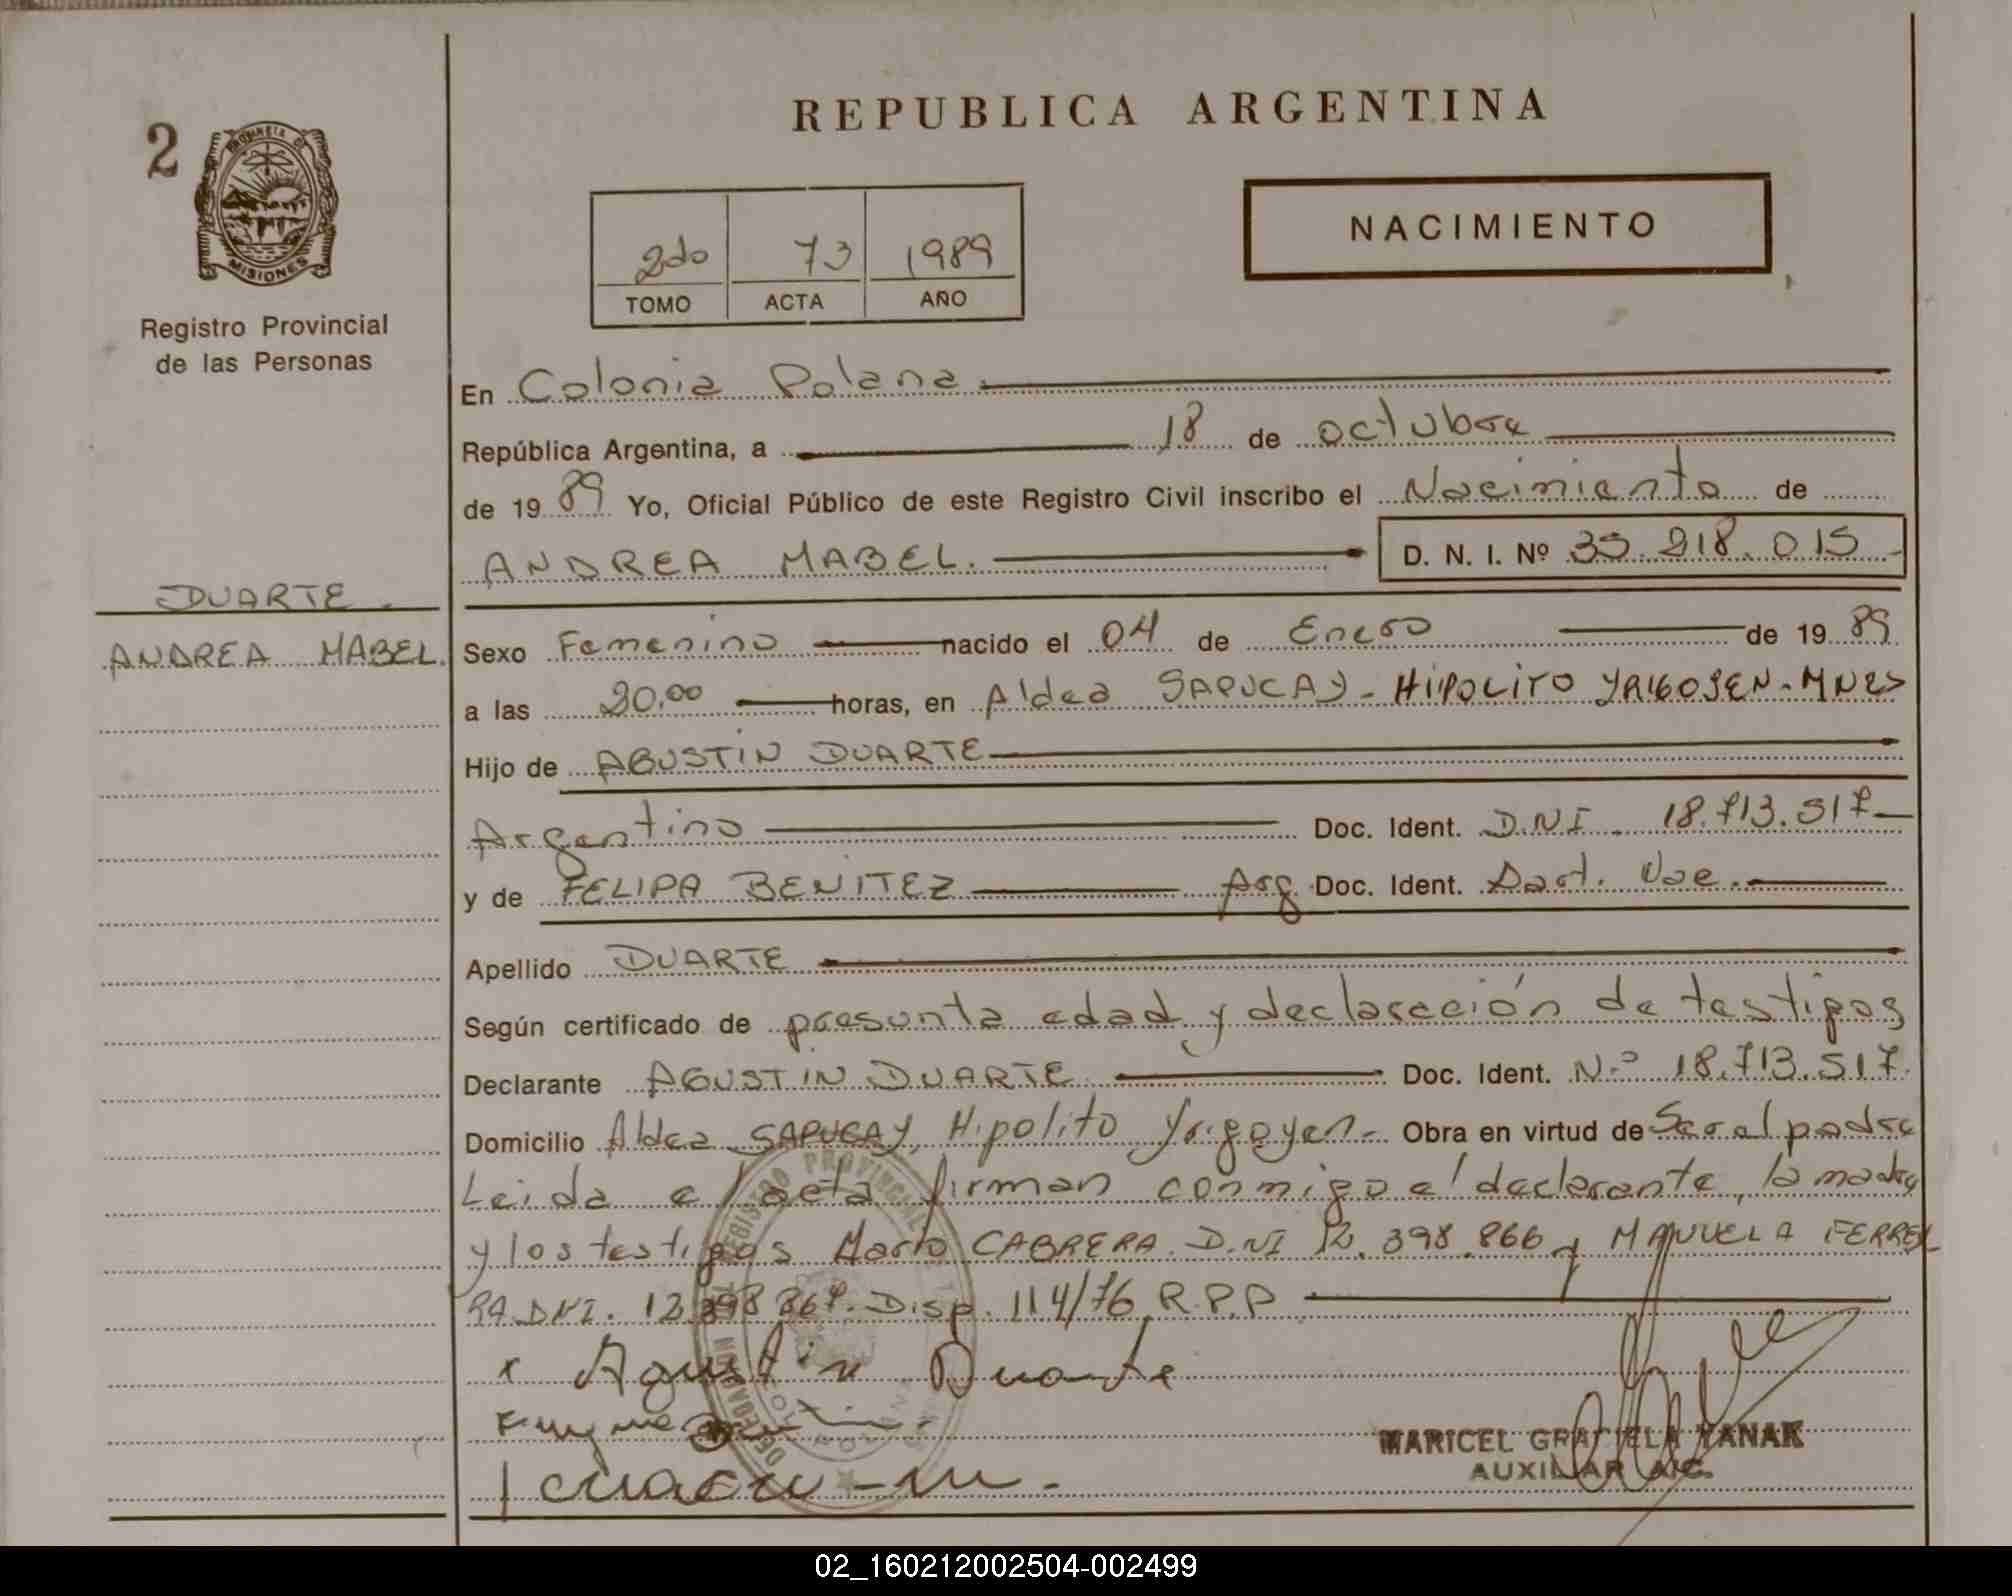 2
PROVINCIA DE
MISIONES
Registro Provincial
de las Personas
REPUBLICA ARGENTINA
2do 73 1989
TOMO ACTA AÑO
NACIMIENTO
En Colonia Polana
República Argentina, a 18 de octubre
de 1989 Yo, Oficial Público de este Registro Civil inscribo el Nacimiento de
ANDREA MABEL. D. N. I. Nº 35.218.015
DUARTE.
ANDREA MABEL.
Sexo Femenino nacido el 04 de Enero de 1989
a las 20,00 horas, en Aldea SAPUCAY - HIPOLITO YRIGOYEN - MNES
Hijo de AGUSTIN DUARTE
Argentino Doc. Ident. D.N.I. 18.713.517
y de FELIPA BENITEZ Arg Doc. Ident.
Apellido DUARTE
Según certificado de presunta edad y declaración de testigos
Declarante AGUSTIN DUARTE Doc. Ident. Nº 18.713.517.
Domicilio Aldea SAPUCAY, Hipolito Yrigoyen- Obra en virtud de Ser el padre
Leida el acta firman conmigo el declarante, la madre
y los testigos CABRERA D.NI 12.398.866 y MANUELA FERREI
RA DNI. 12.398 867. Disp. 114/76 R.P.P
x Agustin Duarte
MARICEL GRACIELA YANAK
AUXILIAR
02_160212002504-002499